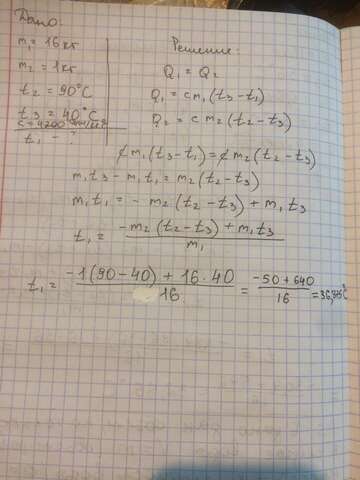 Дано:
m₁ = 16 кг
m₂ = 1 кг
t₂ = 90°C
t₃ = 40°C
t₁ - ?
Решение:
Q₁ = Q₂
Q₁ = cm₁(t₃ - t₁)
Q₂ = cm₂(t₂ - t₃)
cm₁(t₃ - t₁) = cm₂(t₂ - t₃)
m₁t₃ - m₁t₁ = m₂(t₂ - t₃)
m₁t₁ = - m₂(t₂ - t₃) + m₁t₃
t₁ = (-m₂(t₂ - t₃) + m₁t₃) / m₁
t₁ = (-1(90 - 40) + 16·40) / 16 = (-50 + 640) / 16 = 36,875°C